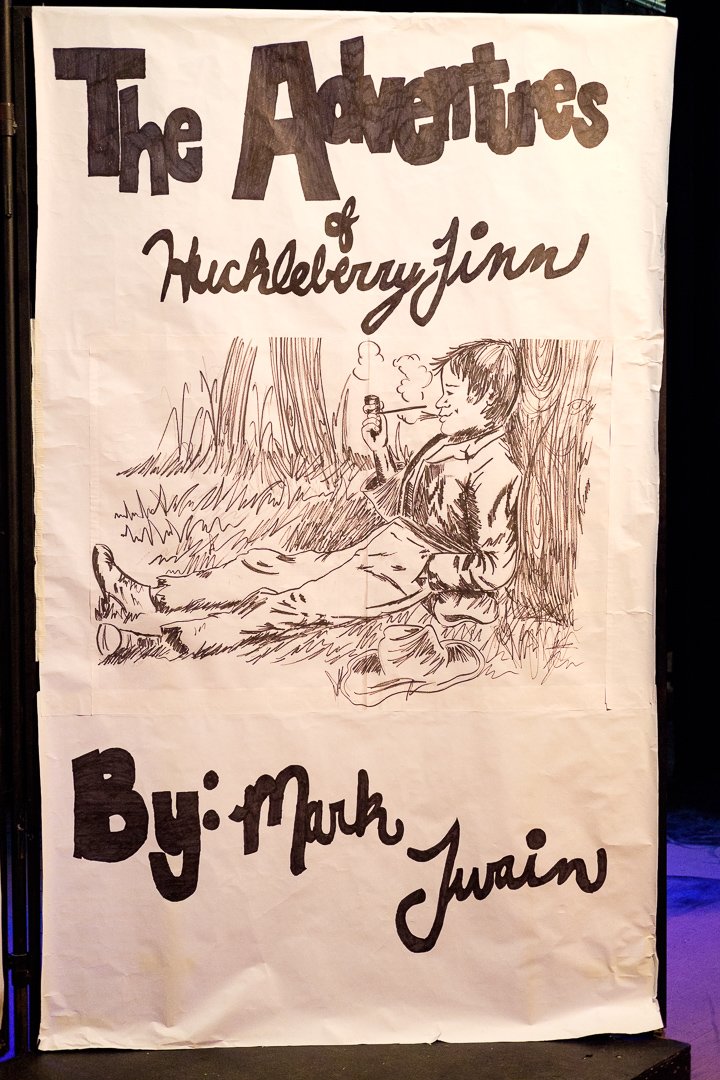 The Adventures
of
Huckleberry Finn
By: Mark
Twain